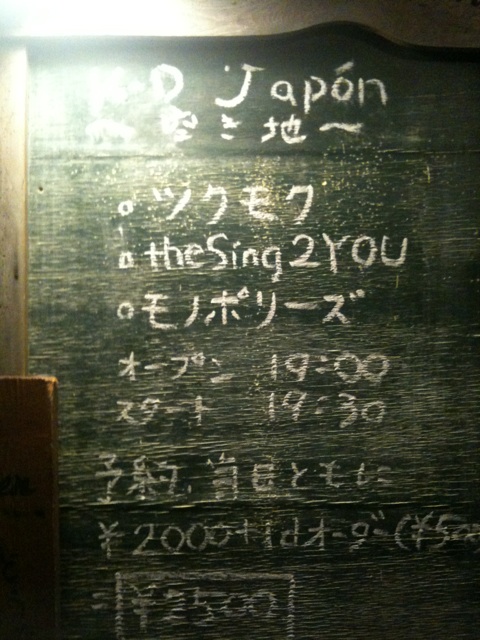 D Japón
空き地〜
ツクモク
theSing2YOU
モノポリーズ
オープン 19:00
スタート 19:30
予約、当日ともに
¥2000+1dオーダー(¥500
=¥2500